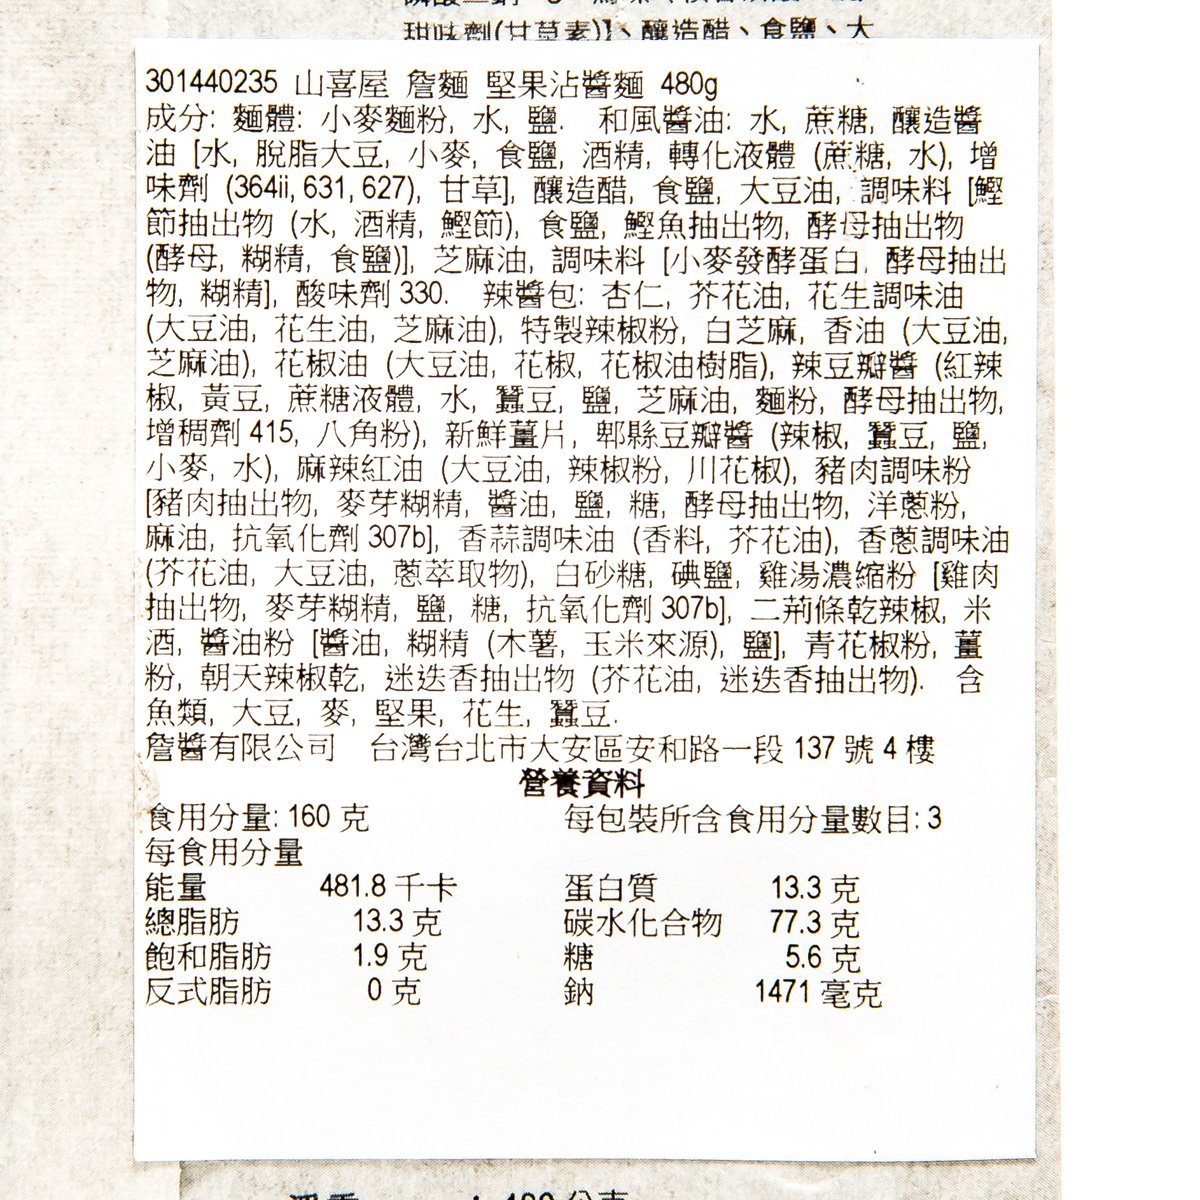 甜味劑(甘草素)]、釀造醋、食鹽、大
301440235 山喜屋 詹麵 堅果沾醬麵 480g
成分: 麵體: 小麥麵粉, 水, 鹽. 和風醬油: 水, 蔗糖, 釀造醬
油 [水, 脫脂大豆, 小麥, 食鹽, 酒精, 轉化液體 (蔗糖, 水), 增
味劑 (364ii, 631, 627), 甘草], 釀造醋, 食鹽, 大豆油, 調味料 [鰹
節抽出物 (水, 酒精, 鰹節), 食鹽, 鰹魚抽出物, 酵母抽出物
(酵母, 糊精, 食鹽)], 芝麻油, 調味料 [小麥發酵蛋白, 酵母抽出
物, 糊精], 酸味劑 330. 辣醬包: 杏仁, 芥花油, 花生調味油
(大豆油, 花生油, 芝麻油), 特製辣椒粉, 白芝麻, 香油 (大豆油,
芝麻油), 花椒油 (大豆油, 花椒, 花椒油樹脂), 辣豆瓣醬 (紅辣
椒, 黃豆, 蔗糖液體, 水, 蠶豆, 鹽, 芝麻油, 麵粉, 酵母抽出物,
增稠劑 415, 八角粉), 新鮮薑片, 郫縣豆瓣醬 (辣椒, 蠶豆, 鹽,
小麥, 水), 麻辣紅油 (大豆油, 辣椒粉, 川花椒), 豬肉調味粉
[豬肉抽出物, 麥芽糊精, 醬油, 鹽, 糖, 酵母抽出物, 洋蔥粉,
麻油, 抗氧化劑 307b], 香蒜調味油 (香料, 芥花油), 香蔥調味油
(芥花油, 大豆油, 蔥萃取物), 白砂糖, 碘鹽, 雞湯濃縮粉 [雞肉
抽出物, 麥芽糊精, 鹽, 糖, 抗氧化劑 307b], 二荊條乾辣椒, 米
酒, 醬油粉 [醬油, 糊精 (木薯, 玉米來源), 鹽], 青花椒粉, 薑
粉, 朝天辣椒乾, 迷迭香抽出物 (芥花油, 迷迭香抽出物). 含
魚類, 大豆, 麥, 堅果, 花生, 蠶豆.
詹醬有限公司 台灣台北市大安區安和路一段 137 號 4 樓
營養資料
食用分量: 160 克 每包裝所含食用分量數目: 3
每食用分量
能量 481.8 千卡 蛋白質 13.3 克
總脂肪 13.3 克 碳水化合物 77.3 克
飽和脂肪 1.9 克 糖 5.6 克
反式脂肪 0 克 鈉 1471 毫克